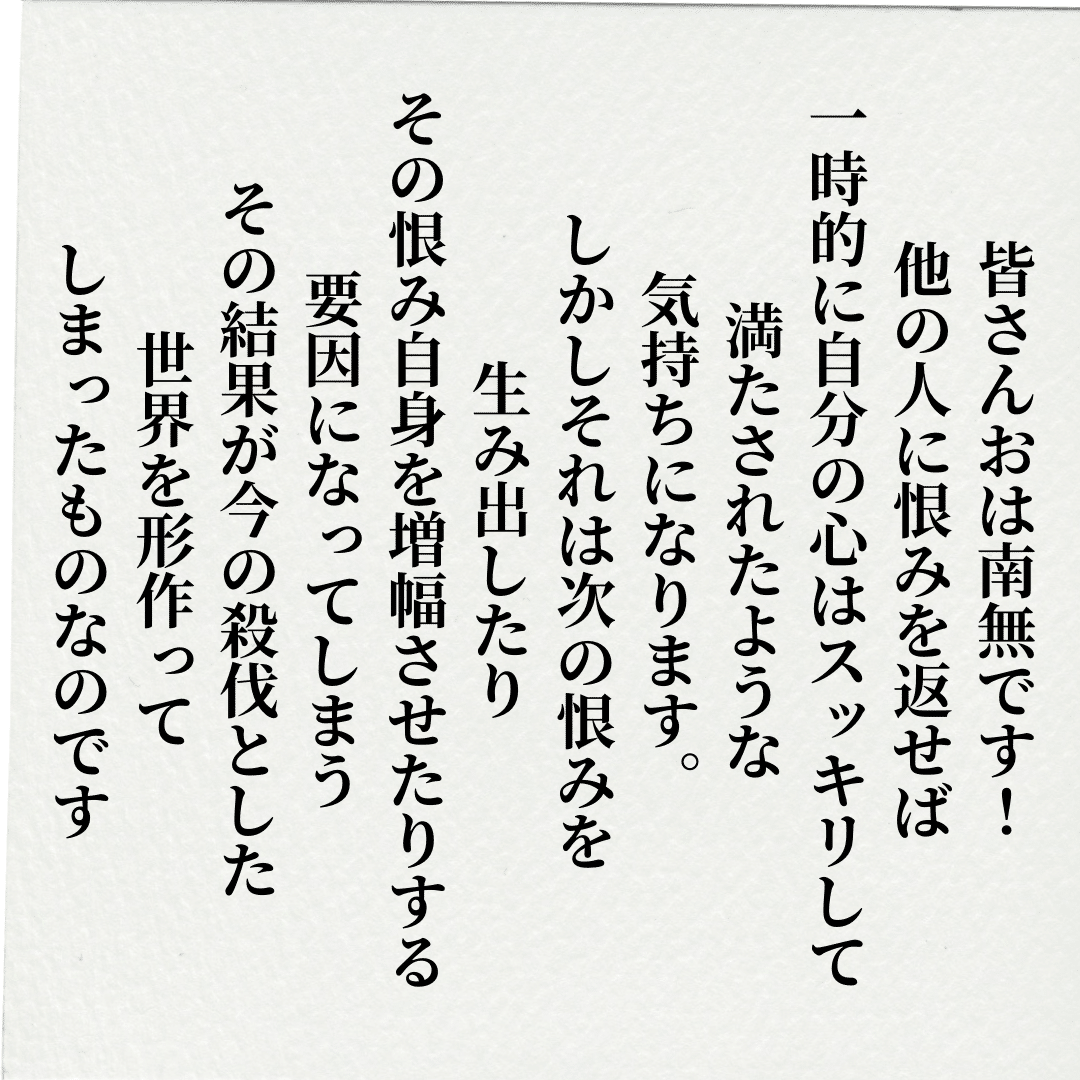 皆さんおは南無です！
他の人に恨みを返せば
一時的に自分の心はスッキリして
満たされたような
気持ちになります。
しかしそれは次の恨みを
生み出したり
その恨み自身を増幅させたりする
要因になってしまう
その結果が今の殺伐とした
世界を形作って
しまったものなのです